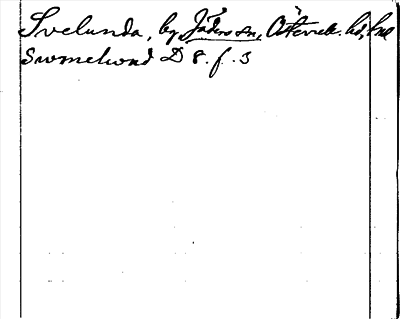 Svelunda, by, Jäders sn, Österrek. hd, Sml
Swmelwnd D 8. f. 3